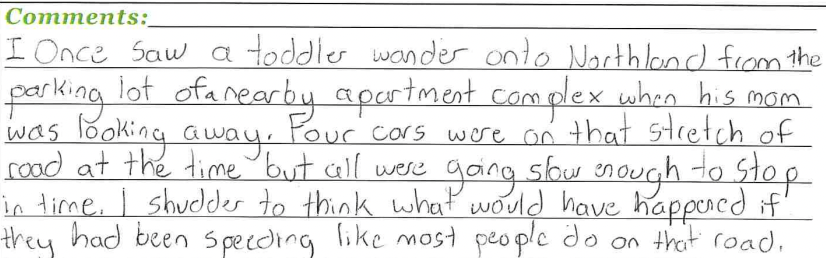 Comments:
I Once saw a toddler wander onto Northland from the
parking lot of a nearby apartment complex when his mom
was looking away. Four cars were on that stretch of
road at the time but all were going slow enough to stop
in time. I shudder to think what would have happened if
they had been speeding like most people do on that road.